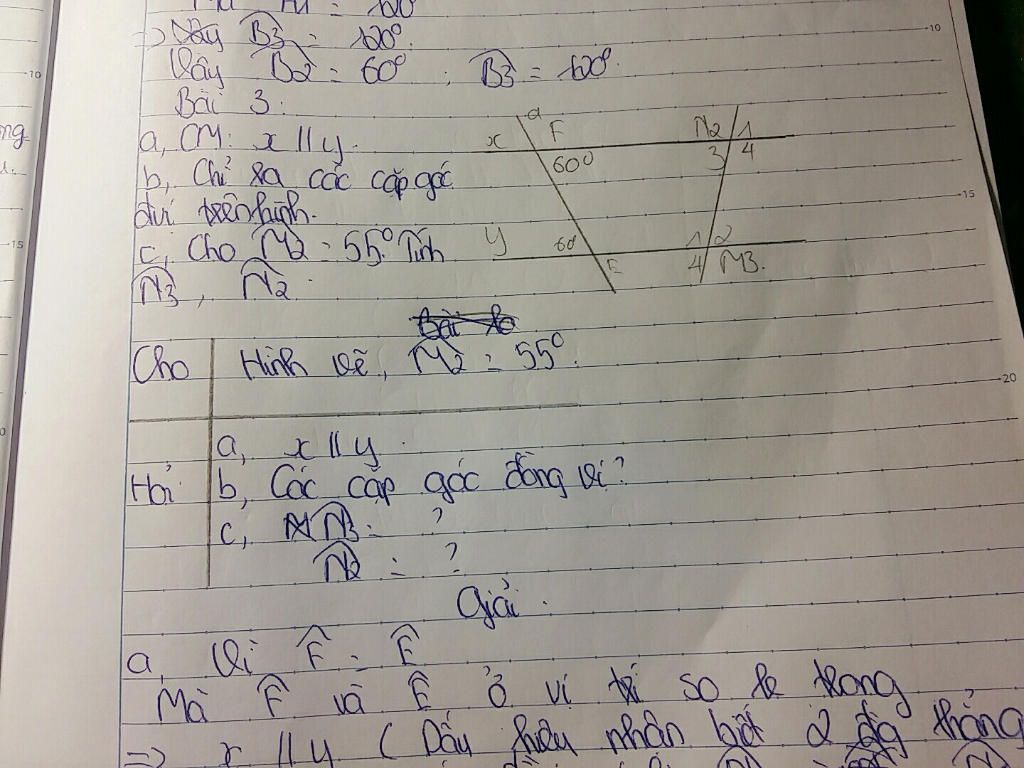 ⇒ Vậy B̂3 = 120°.
Vậy B̂2 = 60° ; B̂3 = 120°.
Bài 3:
a, CM: x // y.
b, Chỉ ra các cặp góc
trên hình.
c, Cho M̂2 = 55°. Tính
N̂3, N̂2.
a
x F N2 1
60° 3 4
y 60 1 2
E 4 M3.
Cho Hình vẽ, M̂2 = 55°.
a, x // y.
Hỏi b, Các cặp góc đồng vị?
c, N̂3 = ?
N̂2 = ?
Giải.
a, Vì F̂ = Ê
Mà F̂ và Ê ở vị trí so le trong
⇒ x // y (Dấu hiệu nhận biết 2 đg thẳng